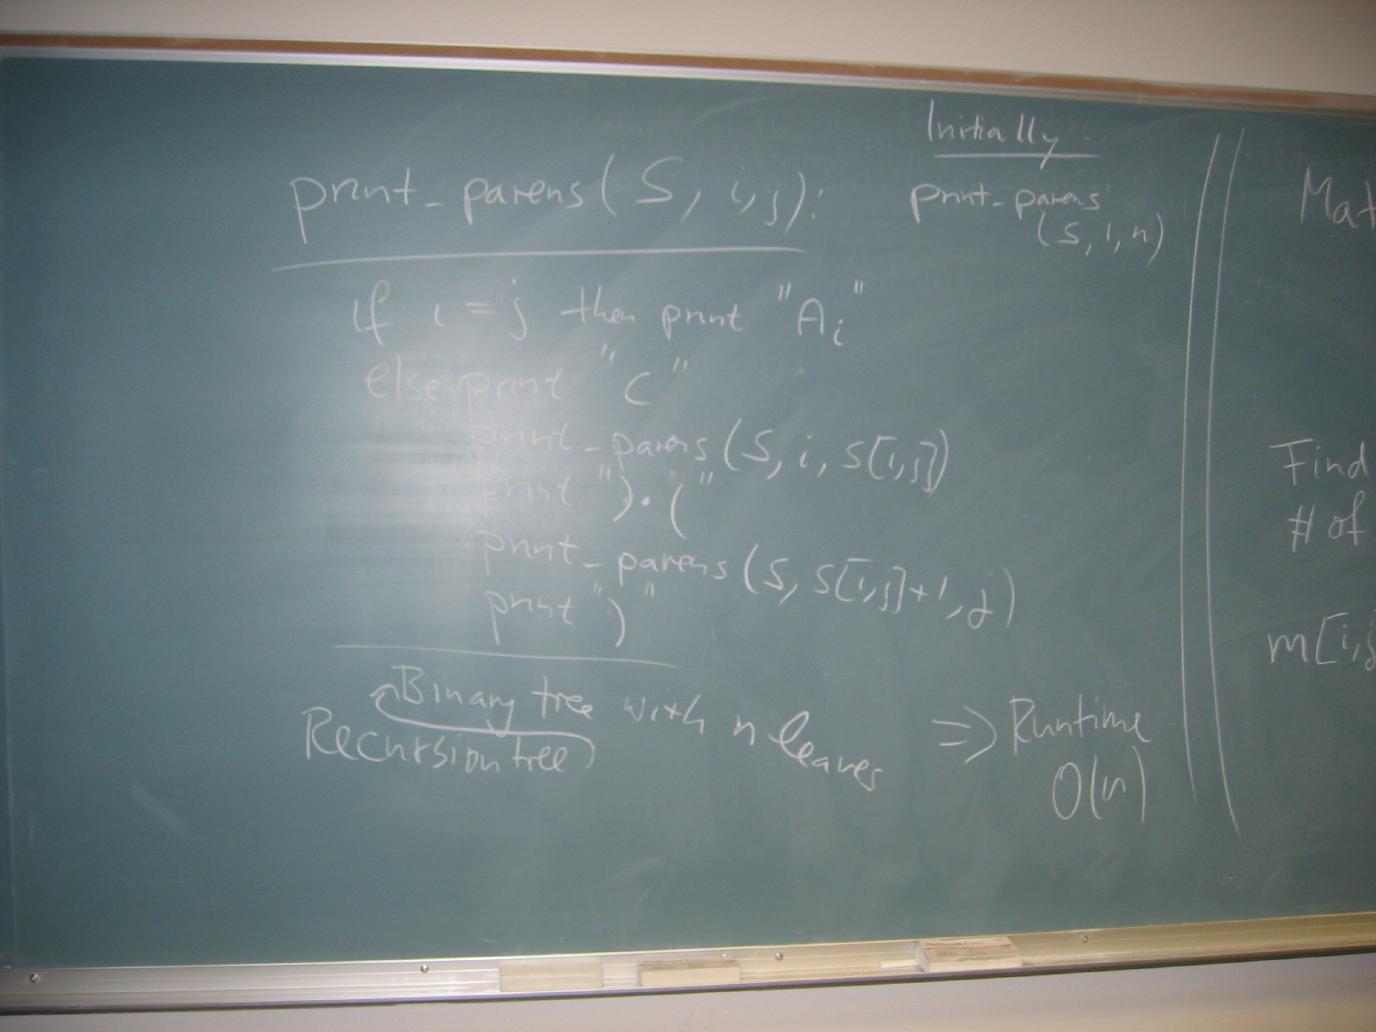 Initially
print_parens(S, i,j):
print-parens
(S, 1, n)
if i = j then print "Ai"
else print "("
print_parens(S, i, S[i,j])
print ")·("
print_parens(S, S[i,j]+1, j)
print ")"
Binary tree with n leaves
Recursion tree
=> Runtime
O(n)
Mat
Find
# of
m[i,j